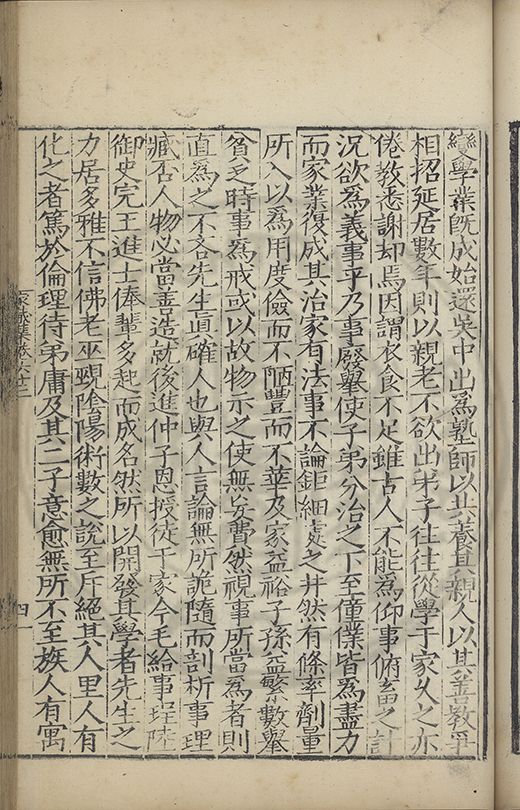 學業既成始還吳中出為塾師以共養其親人以其善教爭
相招延居數年則以親老不欲出弟子往往從學于家久之亦
倦教悉謝却焉因謂衣食不足雖古人不能為仰事俯畜之計
況欲為義事乎乃事廢舉使子弟分治之下至僮僕皆為盡力
而家業復成其治家有法事不論鉅細處之井然有條率劑量
所入以為用度儉而不陋豐而不華及家益裕子孫益繁數舉
貧乏時事為戒或以故物示之使無妄費然視事所當為者則
直為之不吝先生真確人也與人言論無所詭隨而剖析事理
臧否人物必當善造就後進仲子恩授徒于家今毛給事珵陸
御史完王進士俸輩多起而成名然所以開發其學者先生之
力居多雅不信佛老巫覡陰陽術數之說至斥絕其人里人有
化之者篤於倫理待弟庸及其二子意愈無所不至族人有寓
家藏集卷六十二
四